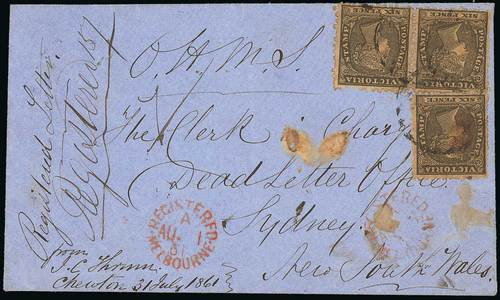 Registered Letter.
Registered 187
O. H. M. S.
The Clerk in Charge
Dead Letter Office
Sydney.
New South Wales.
from
Chewton 31 July 1861
REGISTERED
A
AU 1
61
MELBOURNE
STAMP
SIX PENCE
POSTAGE
VICTORIA
STAMP
SIX PENCE
POSTAGE
VICTORIA
STAMP
SIX PENCE
POSTAGE
VICTORIA